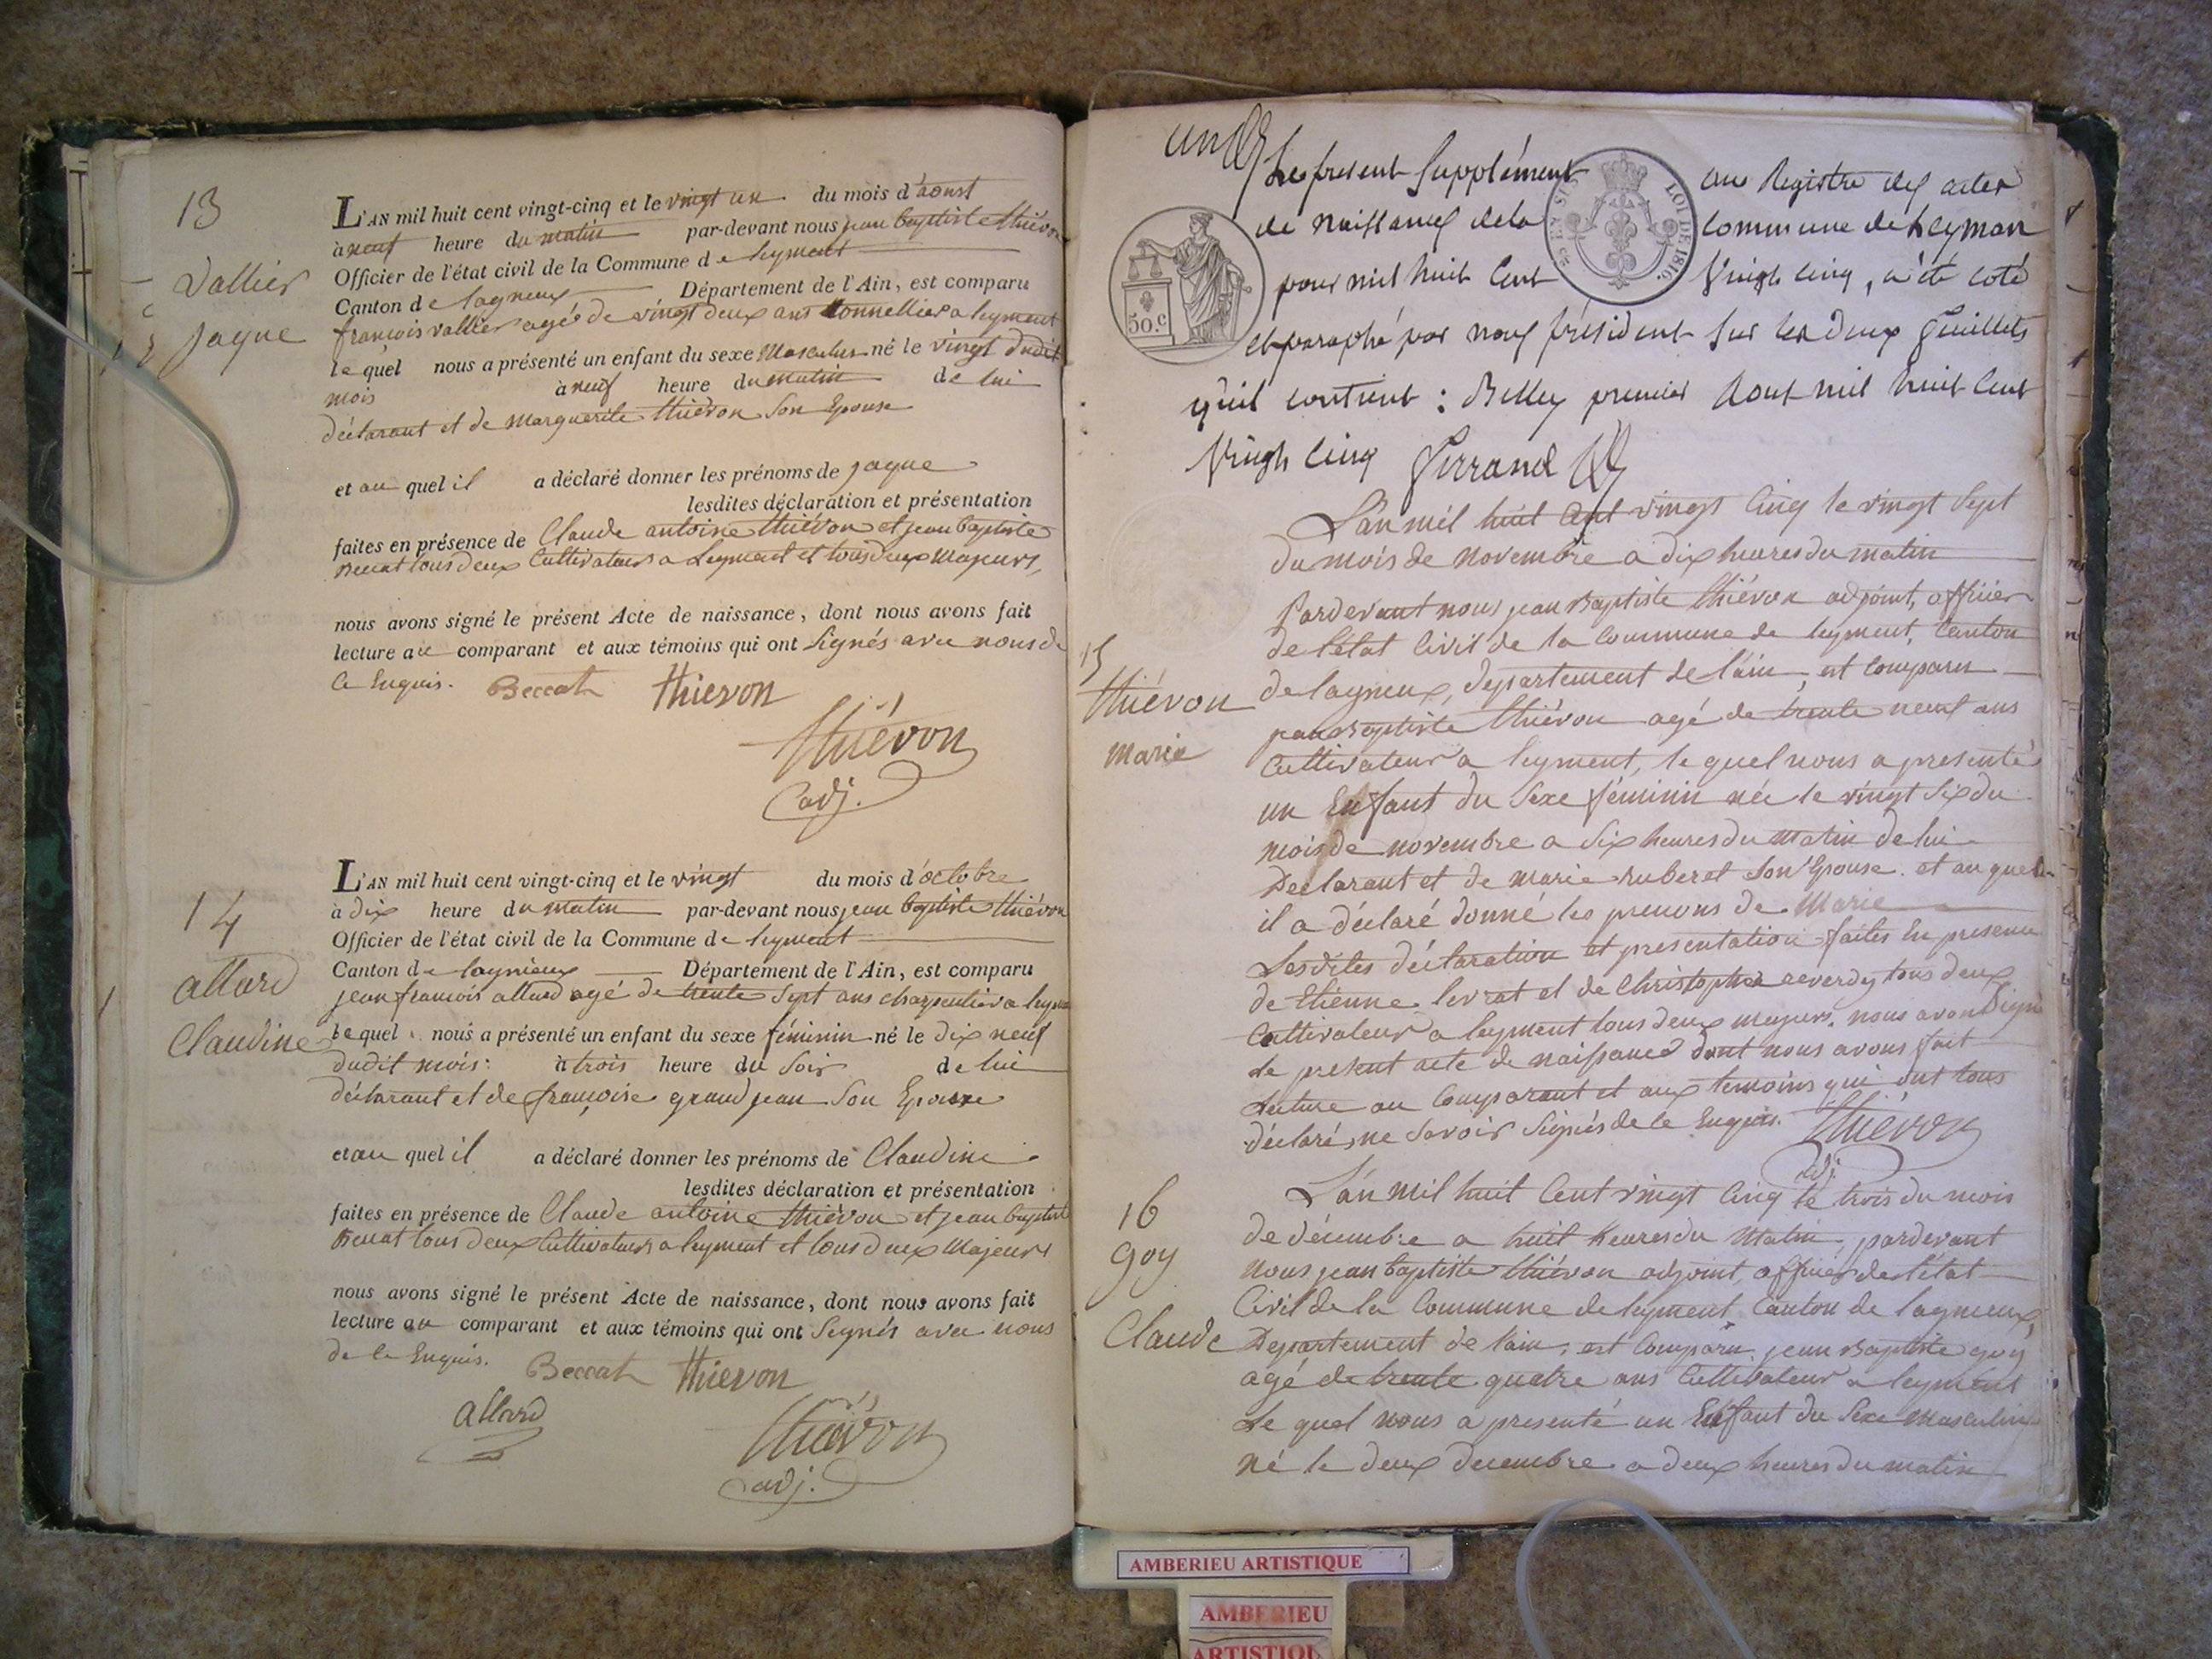 13
Vallier
Jaque
L'AN mil huit cent vingt-cinq et le vingt un du mois d'aoust
à neuf heure du matin par-devant nous jean baptiste thiévon
Officier de l'état civil de la Commune de leyment
Canton de lagneux Département de l'Ain, est comparu
françois vallier agé de vingt deux ans tonnellier a leyment
lequel nous a présenté un enfant du sexe Masculin né le vingt dudit
mois à neuf heure du matin de lui
déclarant et de marguerite thiévon Son Epouse
et au quel il a déclaré donner les prénoms de jaque
lesdites déclaration et présentation
faites en présence de Claude antoine thiévon et jean baptiste
Beccat tous deux Cultivateurs a Leyment et tous deux Majeurs,
nous avons signé le présent Acte de naissance, dont nous avons fait
lecture au comparant et aux témoins qui ont Signés avec nous de
Ce Enquis. Beccat thievon
thiévon
adj.
14
allard
Claudine
L'AN mil huit cent vingt-cinq et le vingt du mois d'octobre
à dix heure du matin par-devant nous jean baptiste thiévon
Officier de l'état civil de la Commune de leyment
Canton de lagnieux Département de l'Ain, est comparu
jean francois allard agé de trente Sept ans charpentier a leyment
lequel nous a présenté un enfant du sexe féminin né le dix neuf
dudit mois: à trois heure du Soir de lui
déclarant et de françoise grand jean Son Epouse
et au quel il a déclaré donner les prénoms de Claudine
lesdites déclaration et présentation
faites en présence de Claude antoine thiévon et jean baptiste
Beccat tous deux Cultivateurs a leyment et tous deux Majeurs
nous avons signé le présent Acte de naissance, dont nous avons fait
lecture au comparant et aux témoins qui ont Segnés avec nous
de Ce Enquis. Beccat thievon
allard
thiévon
adj.
un
Le present Supplément au Registre des actes
de Naissances de la Commune de Leyman
pour mil huit Cent Vingt Cinq, a été coté
et paraphé par nous président sur les deux feuillets
qu'il contient : Belley premier Aout mil huit Cent
Vingt Cinq
50.C
LOI DE 1816.
L'an mil huit Cent vingt Cinq le vingt Sept
du mois de Novembre a dix heures du matin
Pardevant nous jean Baptiste thiévon adjoint, officier
de l'état Civil de la Commune de leyment, Canton
15
thiévon
marie
de lagneux, département de l'ain, est Comparu
jean Baptiste thiévon agé de trente neuf ans
Cultivateur a leyment, le quel nous a presenté
un Enfant du Sexe féminin née le vingt Six du
mois de novembre a Six heures du Matin de lui
Declarant et de Marie ruberet Son Epouse. et au quel
il a déclaré donné les prenoms de Marie
Lesdites déclaration et presentation faites En presence
de Etienne levrat et de Christophe reverdy tous deux
Cultivateur a leyment tous deux majeurs. nous avons Signé
Le present acte de naissance dont nous avons fait
Lecture au Comparant et aux temoins qui ont tous
déclaré, ne Savoir Signés de Ce Enquis. thiévon
adj.
16
Goy
Claude
L'an Mil huit Cent vingt Cinq le trois du mois
de décembre a huit heures du Matin, pardevant
Nous jean baptiste thiévon adjoint, officier de l'état
Civil de la Commune de leyment, Canton de lagneux,
Departement de l'ain, est Comparu jean Baptiste goy
agé de trente quatre ans Cultivateur a leyment
Le quel nous a presenté un Enfant du Sexe Masculin
né le deux decembre a deux heures du matin
AMBERIEU ARTISTIQUE
AMBERIEU